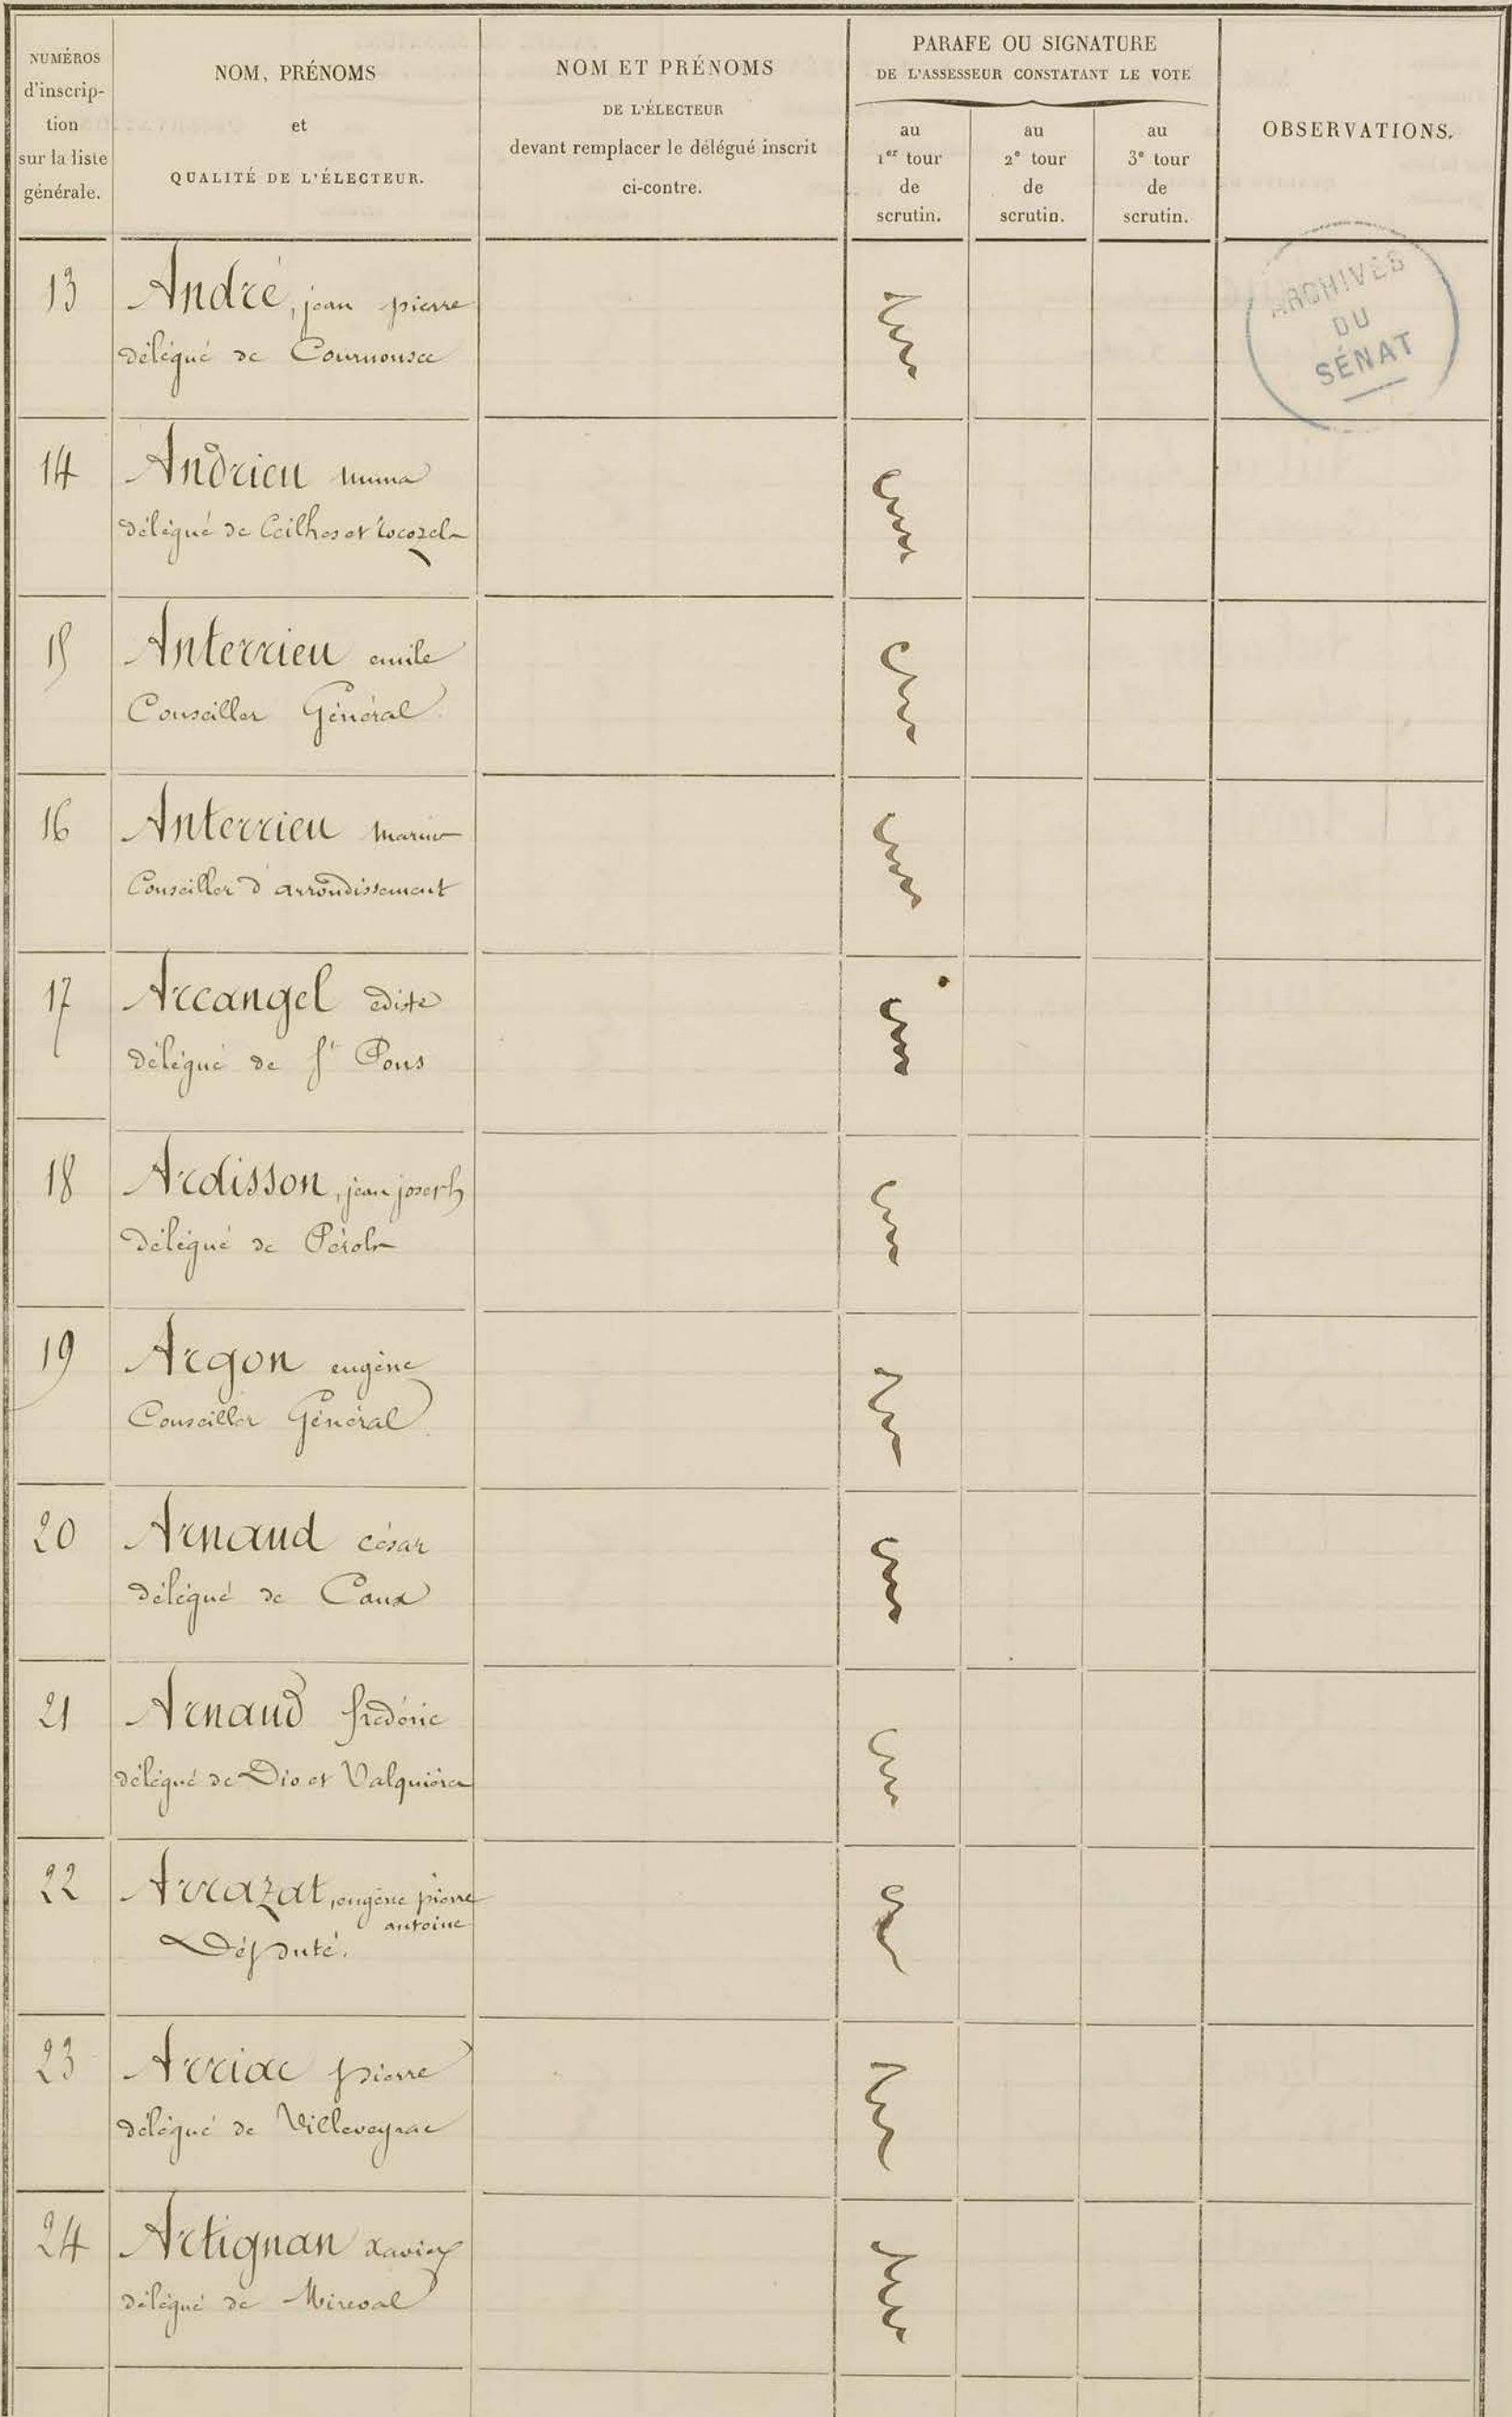 NUMÉROS
d'inscrip-
tion
sur la liste
générale.
NOM, PRÉNOMS
et
QUALITÉ DE L'ÉLECTEUR.
NOM ET PRÉNOMS
DE L'ÉLECTEUR
devant remplacer le délégué inscrit
ci-contre.
PARAFE OU SIGNATURE
DE L'ASSESSEUR CONSTATANT LE VOTE
au
1er tour
de
scrutin.
au
2e tour
de
scrutin.
au
3e tour
de
scrutin.
OBSERVATIONS.
ARCHIVES
DU
SÉNAT
13 André, jean pierre
délégué de
14 Andrieu numa
délégué de Ceilhes et Rocozels
15 Anterrieu emile
Conseiller Général
16 Anterrieu
Conseiller d'arrondissement
17 Arcangel
délégué de St Pons
18 Ardisson, jean joseph
délégué de Pérols
19 Argon eugène
Conseiller Général
20 Arnaud césar
délégué de Caux
21 Arnaud frédéric
délégué de Dio et Valquières
22 Arrazat, eugène pierre
antoine
Député.
23 Arriac pierre
délégué de Villeveyrac
24 Artignan xavier
délégué de Mireval